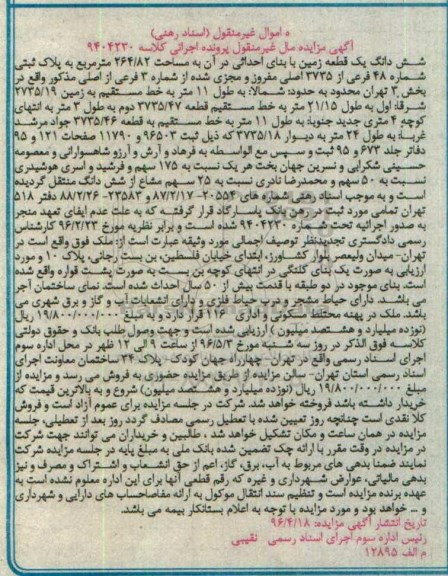 ه اموال غیرمنقول (اسناد رهنی)
آگهی مزایده مال غیرمنقول پرونده اجرائی کلاسه ۹۴۰۴۲۳۰
شش دانگ یک قطعه زمین با بنای احداثی در آن به مساحت ۲۶۴/۸۲ مترمربع به پلاک ثبتی
شماره ۴۸ فرعی از ۳۷۳۵ اصلی مفروز و مجزی شده از شماره ۳ فرعی از اصلی مذکور واقع در
بخش ۳ تهران محدود به حدود: شمالا: به طول ۱۱ متر به خط مستقیم به زمین ۲۷۳۵/۱۹
شرقا: اول به طول ۲۱/۱۵ متر به خط مستقیم قطعه ۳۷۳۵/۴۷ دوم به طول ۳ متر به انتهای
کوچه ۴ متری جدید جنوبا: به طول ۱۱ متر به خط مستقیم به قطعه ۳۷۳۵/۴۶ جواد مرشد
غربا: به طول ۲۴ متر به دیوار ۳۷۳۵/۱۸ که ذیل ثبت ۹۶۵۰۳ و ۱۱۷۹۰ صفحات ۱۲۱ و ۹۵
دفاتر جلد ۶۷۳ و ۹۵ ثبت و سپس مع الواسطه به فرهاد و آرش و آرزو شاهسوارانی و معصومه
حسینی شکرابی و نسرین جهان بخت هر یک نسبت به ۱۷۵ سهم و فرشید و اسری هوشیدری
نسبت به ۵۰ سهم و محمدرضا نادری نسبت به ۲۵ سهم مشاع از شش دانگ منتقل گردیده
است و به موجب اسناد رهنی شماره های ۲۰۵۵۴-۸۷/۲/۱۷ و ۲۳۵۸۳-۸۸/۲/۲۶ دفتر ۵۱۸
تهران تمامی مورد ثبت در رهن بانک پاسارگاد قرار گرفته که به علت عدم ایفای تعهد منجر
به صدور اجرائیه تحت شماره ۹۴۰۴۲۳۰ شده است و برابر نظریه مورخ ۹۶/۲/۲۳ کارشناس
رسمی دادگستری تجدیدنظر توصیف اجمالی مورد وثیقه عبارت است از: ملک فوق واقع است در
تهران- میدان ولیعصر بلوار کشاورز، ابتدای خیابان فلسطین، بن بست رجائی، پلاک ۱۰ و مورد
ارزیابی به صورت یک بنای کلنگی در انتهای کوچه بن بست به صورت پشت قواره واقع شده
است. بنای موجود در دو طبقه با قدمت بیش از ۵۰ سال احداث شده است. نمای ساختمان آجر
می باشد. دارای حیاط مشجر و درب حیاط فلزی و دارای انشعابات آب و گاز و برق شهری می
باشد. ملک در پهنه مختلط مسکونی و اداری ۱۱۶ قرار دارد و به مبلغ ۱۹/۸۰۰/۰۰۰/۰۰۰ ریال
(نوزده میلیارد و هشتصد میلیون) ارزیابی شده است و جهت وصول طلب بانک و حقوق دولتی
کلاسه فوق الذکر در روز سه شنبه مورخ ۹۶/۵/۳ از ساعت ۹ الی ۱۲ ظهر در محل اداره سوم
اجرای اسناد رسمی واقع در تهران- چهارراه جهان کودک- پلاک ۳۴ ساختمان معاونت اجرای
اسناد رسمی استان تهران- سالن مزایده از طریق مزایده حضوری به فروش می رسد و مزایده از
مبلغ ۱۹/۸۰۰/۰۰۰/۰۰۰ ریال (نوزده میلیارد و هشتصد میلیون) شروع و به بالاترین قیمت که
خریدار داشته باشد فروخته خواهد شد. شرکت در جلسه مزایده برای عموم آزاد است و فروش
کلا نقدی است چنانچه روز تعیین شده با تعطیل رسمی مصادف گردد روز بعد از تعطیلی، جلسه
مزایده در همان ساعت و مکان تشکیل خواهد شد ، طالبین و خریداران می توانند جهت شرکت
در مزایده در وقت مقرر با ارائه چک تضمین شده بانک ملی به مبلغ پایه در جلسه مزایده شرکت
نمایند ضمنا بدهی های مربوط به آب، برق، گاز، اعم از حق انشعاب و اشتراک و مصرف و نیز
بدهی مالیاتی، عوارض شهرداری و غیره که رقم قطعی آنها برای این اداره معلوم نشده است به
عهده برنده مزایده است و تنظیم سند انتقال موکول به ارائه مفاصاحساب های دارایی و شهرداری
و ... خواهد بود و مورد مزایده با توجه به اعلام بستانکار بیمه می باشد.
تاریخ انتشار آگهی مزایده: ۹۶/۴/۱۸
رئیس اداره سوم اجرای اسناد رسمی نقیبی
م الف ۱۲۸۹۵